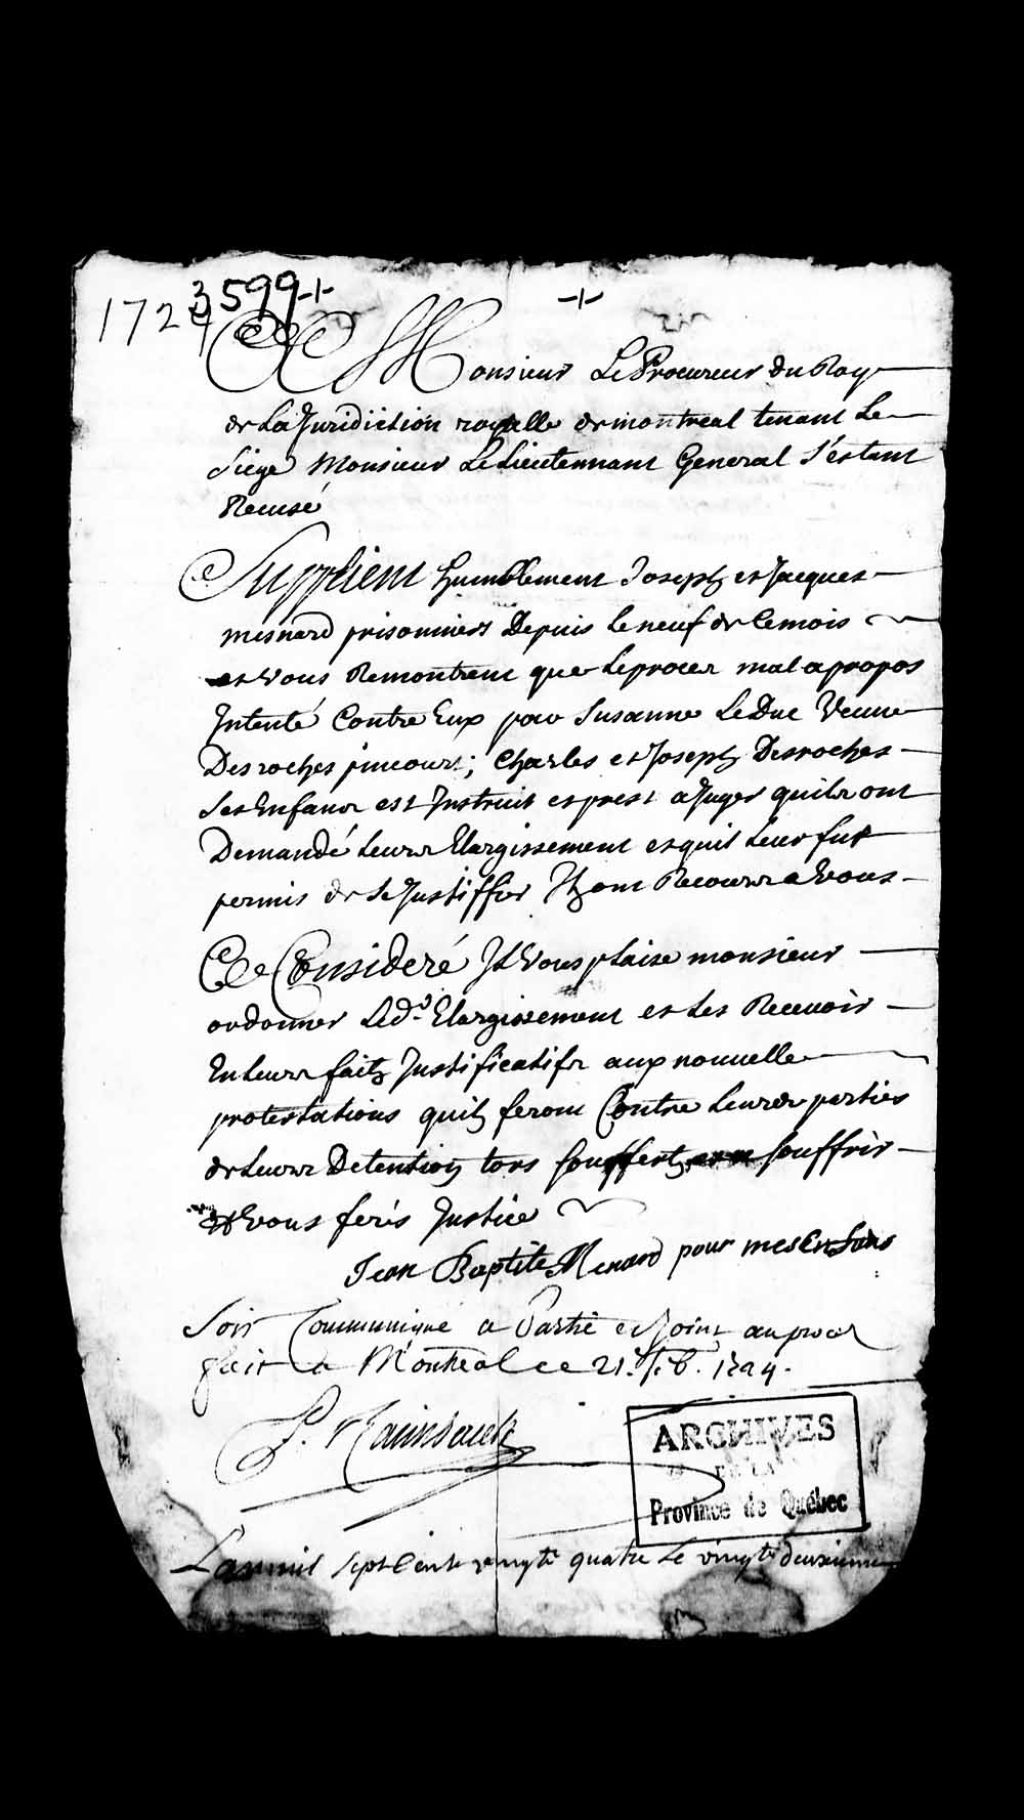 3599-1-
1724
A Monsieur Le Procureur du Roy
de La Juridiction royalle de montreal tenant Le
siege Monsieur Le Lieutennant General s'estant
Recusé
Supplient humblement Joseph et Jacques
mesnard prisonniers Depuis le neuf de ce mois
et vous Remontrent que le procez mal apropos
Intenté Contre Eux par Susanne LeDuc Veuve
Desroches pincourt; Charles et Joseph Desroches
ses Enfans est Instruit et prest a Juger quils ont
Demandé Leurs Elargissement et quil leur fut
permis de se Justiffier Ils ont Recours a vous
Ce Consideré Il vous plaise monsieur
ordonner Led.t Elargissement et Les Recevoir
En Leurs faits Justificatifs aux nouvelle
protestations quils feront Contre Leurs parties
de Leurs Detention tors souffert souffrir
et vous ferés Justice
Jean Baptite Menard pour mes Enfans
Soit Communiqué a Partie et Joint au procez
fait a Montreal ce 21e feb. 1724.
P. Raimbault
ARCHIVES
DE LA
Province de Québec
Lan mil sept Cent vingt quatre le vingt deuxieme